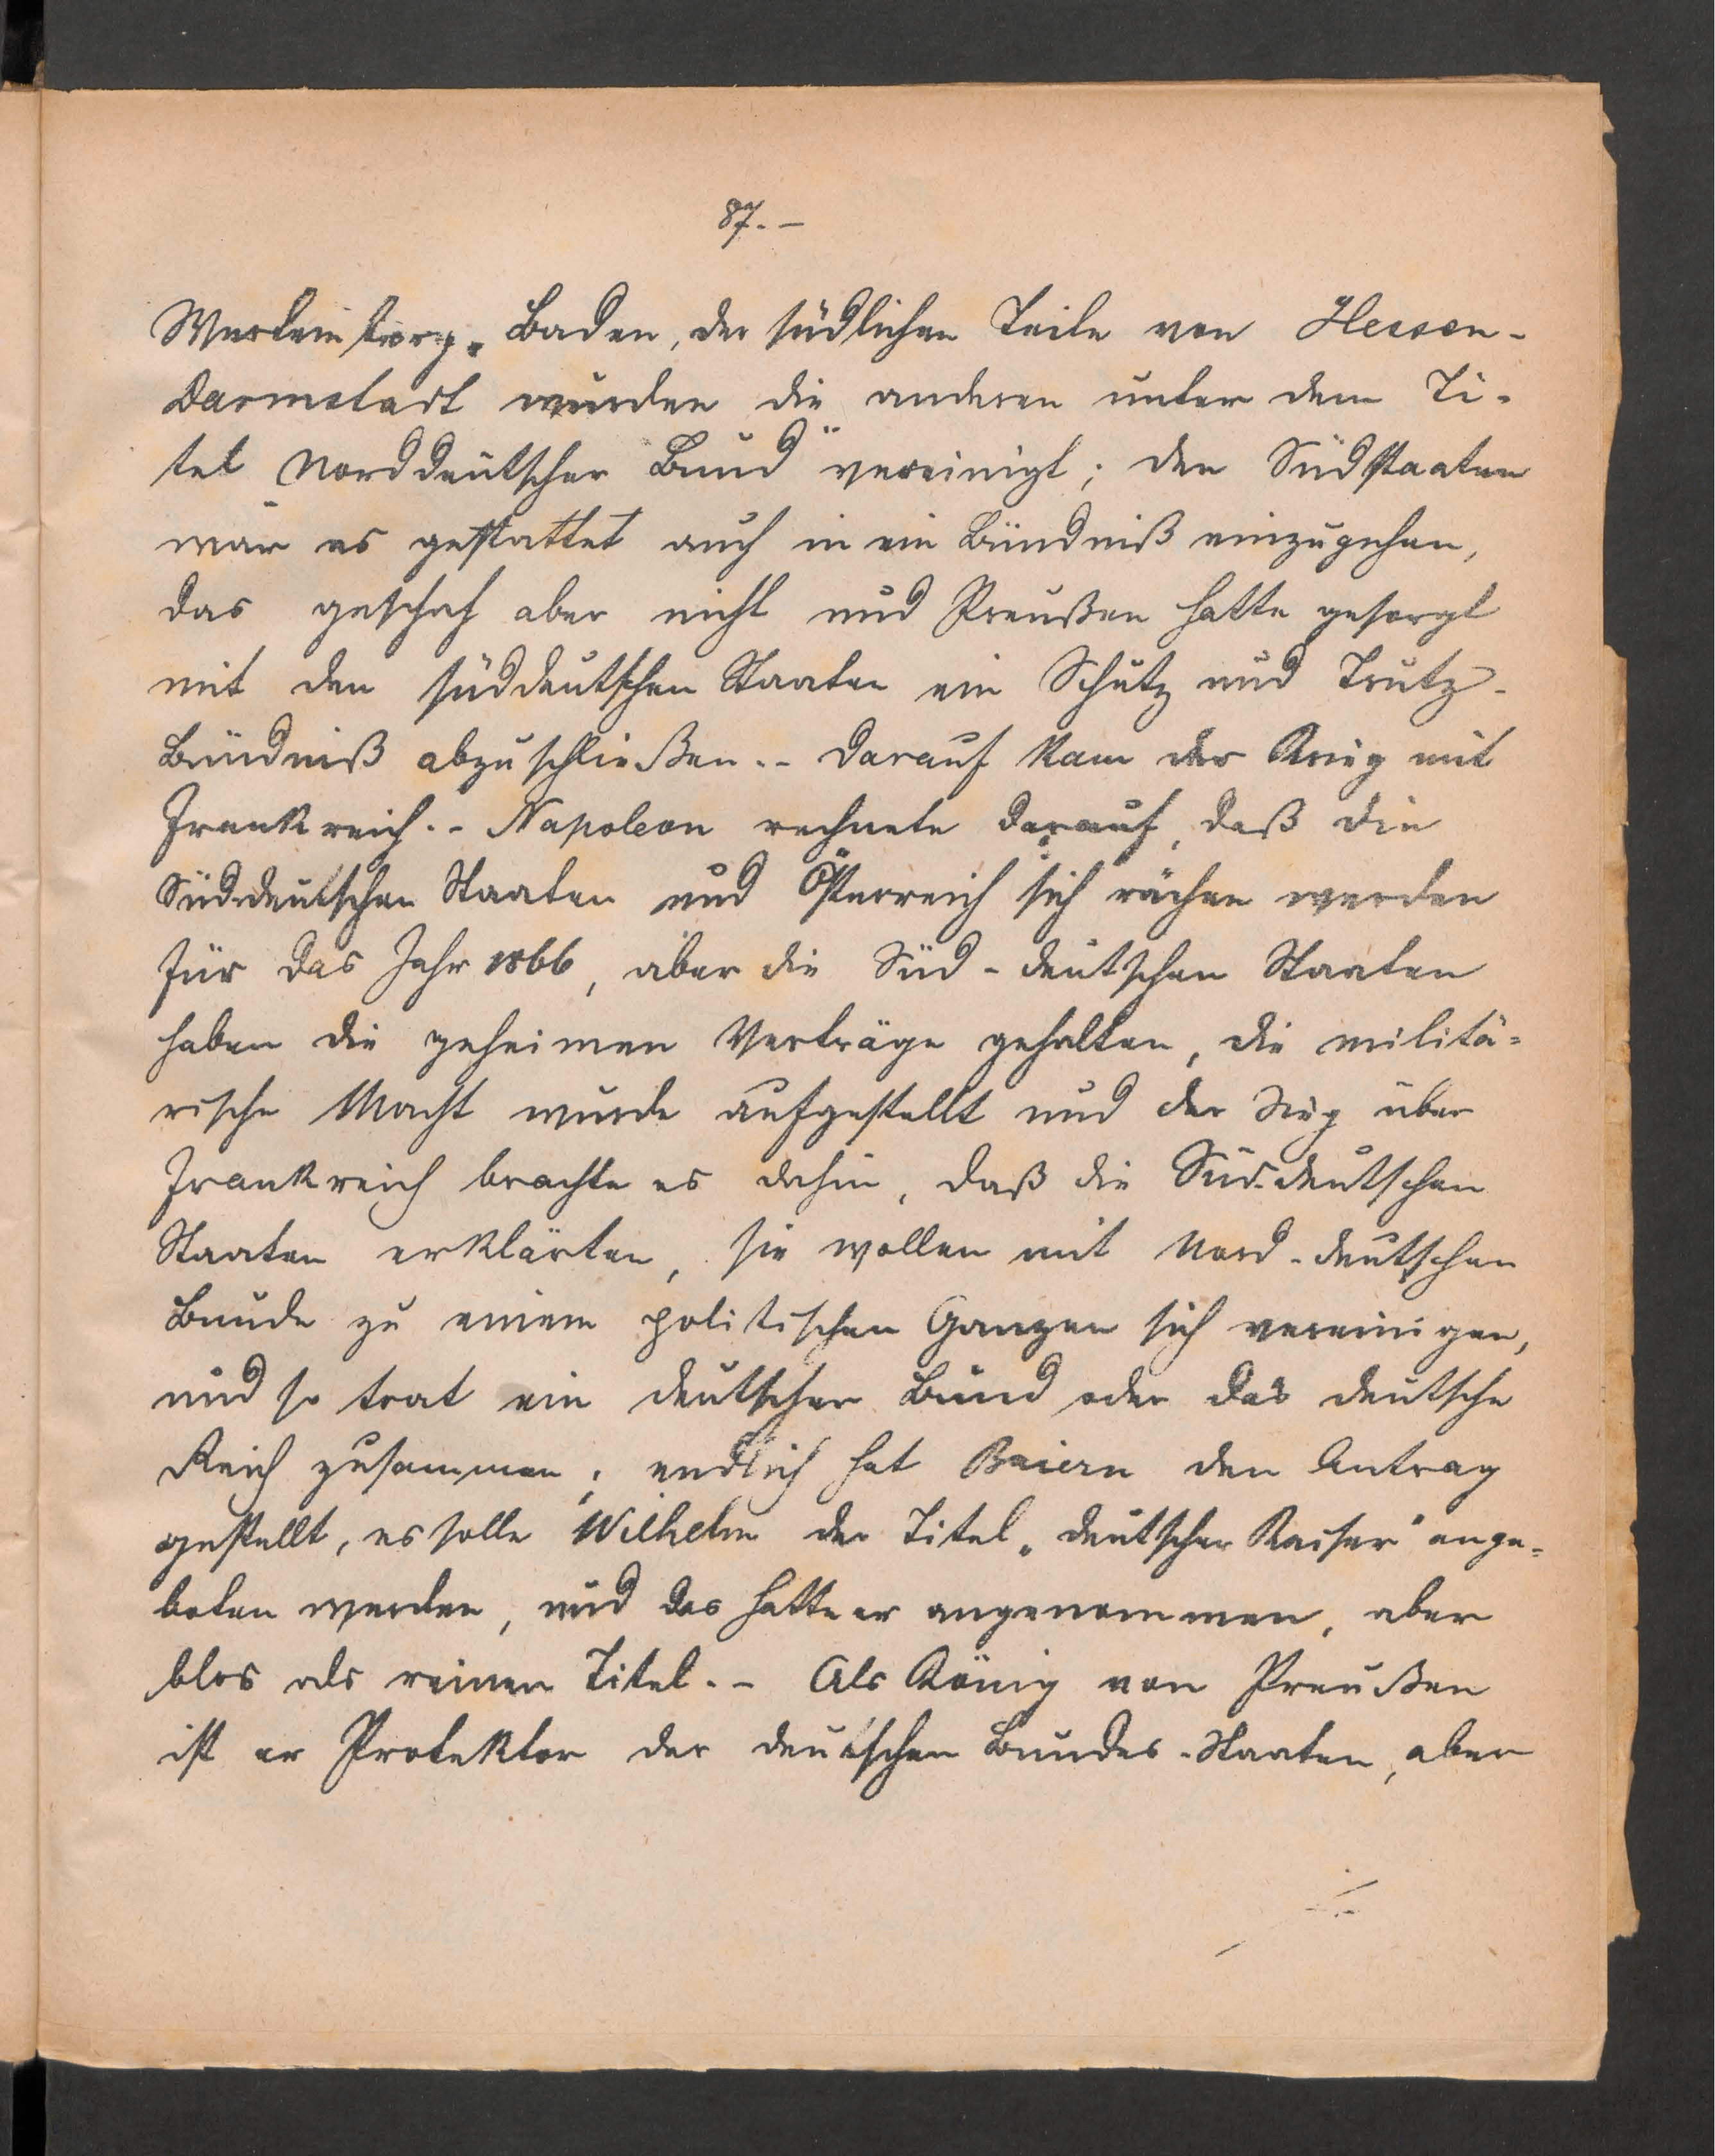 87.-
Wurtemberg, Baden, der südlichen Teile von Hessen-
Darmstadt wurden die anderen unter dem Ti-
tel Norddeutscher Bund" vereinigt; den Südstaaten
war es gestattet auch in ein Bündniß einzugehen,
das geschah aber nicht und Preußen hatte gesorgt
mit den süddeutschen Staaten ein Schutz und Trutz-
Bündniß abzuschließen.- Darauf kam der Krieg mit
Frankreich.- Napoleon rechnete darauf, daß die
Süddeutschen Staaten und Österreich sich rächen werden
für das Jahr 1866, aber die Süd-deutschen Staaten
haben die geheimen Verträge gehalten, die militä-
rische Macht wurde aufgestellt und der Sieg über
Frankreich brachte es dahin, daß die Süd-deutschen
Staaten erklärten, sie wollen mit Nord-deutschen
Bunde zu einem politischen Ganzen sich vereinigen,
und so trat ein deutscher Bund oder das deutsche
Reich zusammen; endlich hat Baiern den Antrag
gestellt, es solle Wilhelm der Titel „deutscher Kaiser" ange-
boten werden, und das hatte er angenommen, aber
blos als reinen Titel.- Als König von Preußen
ist er Protektor der deutschen Bundes-Staaten, aber